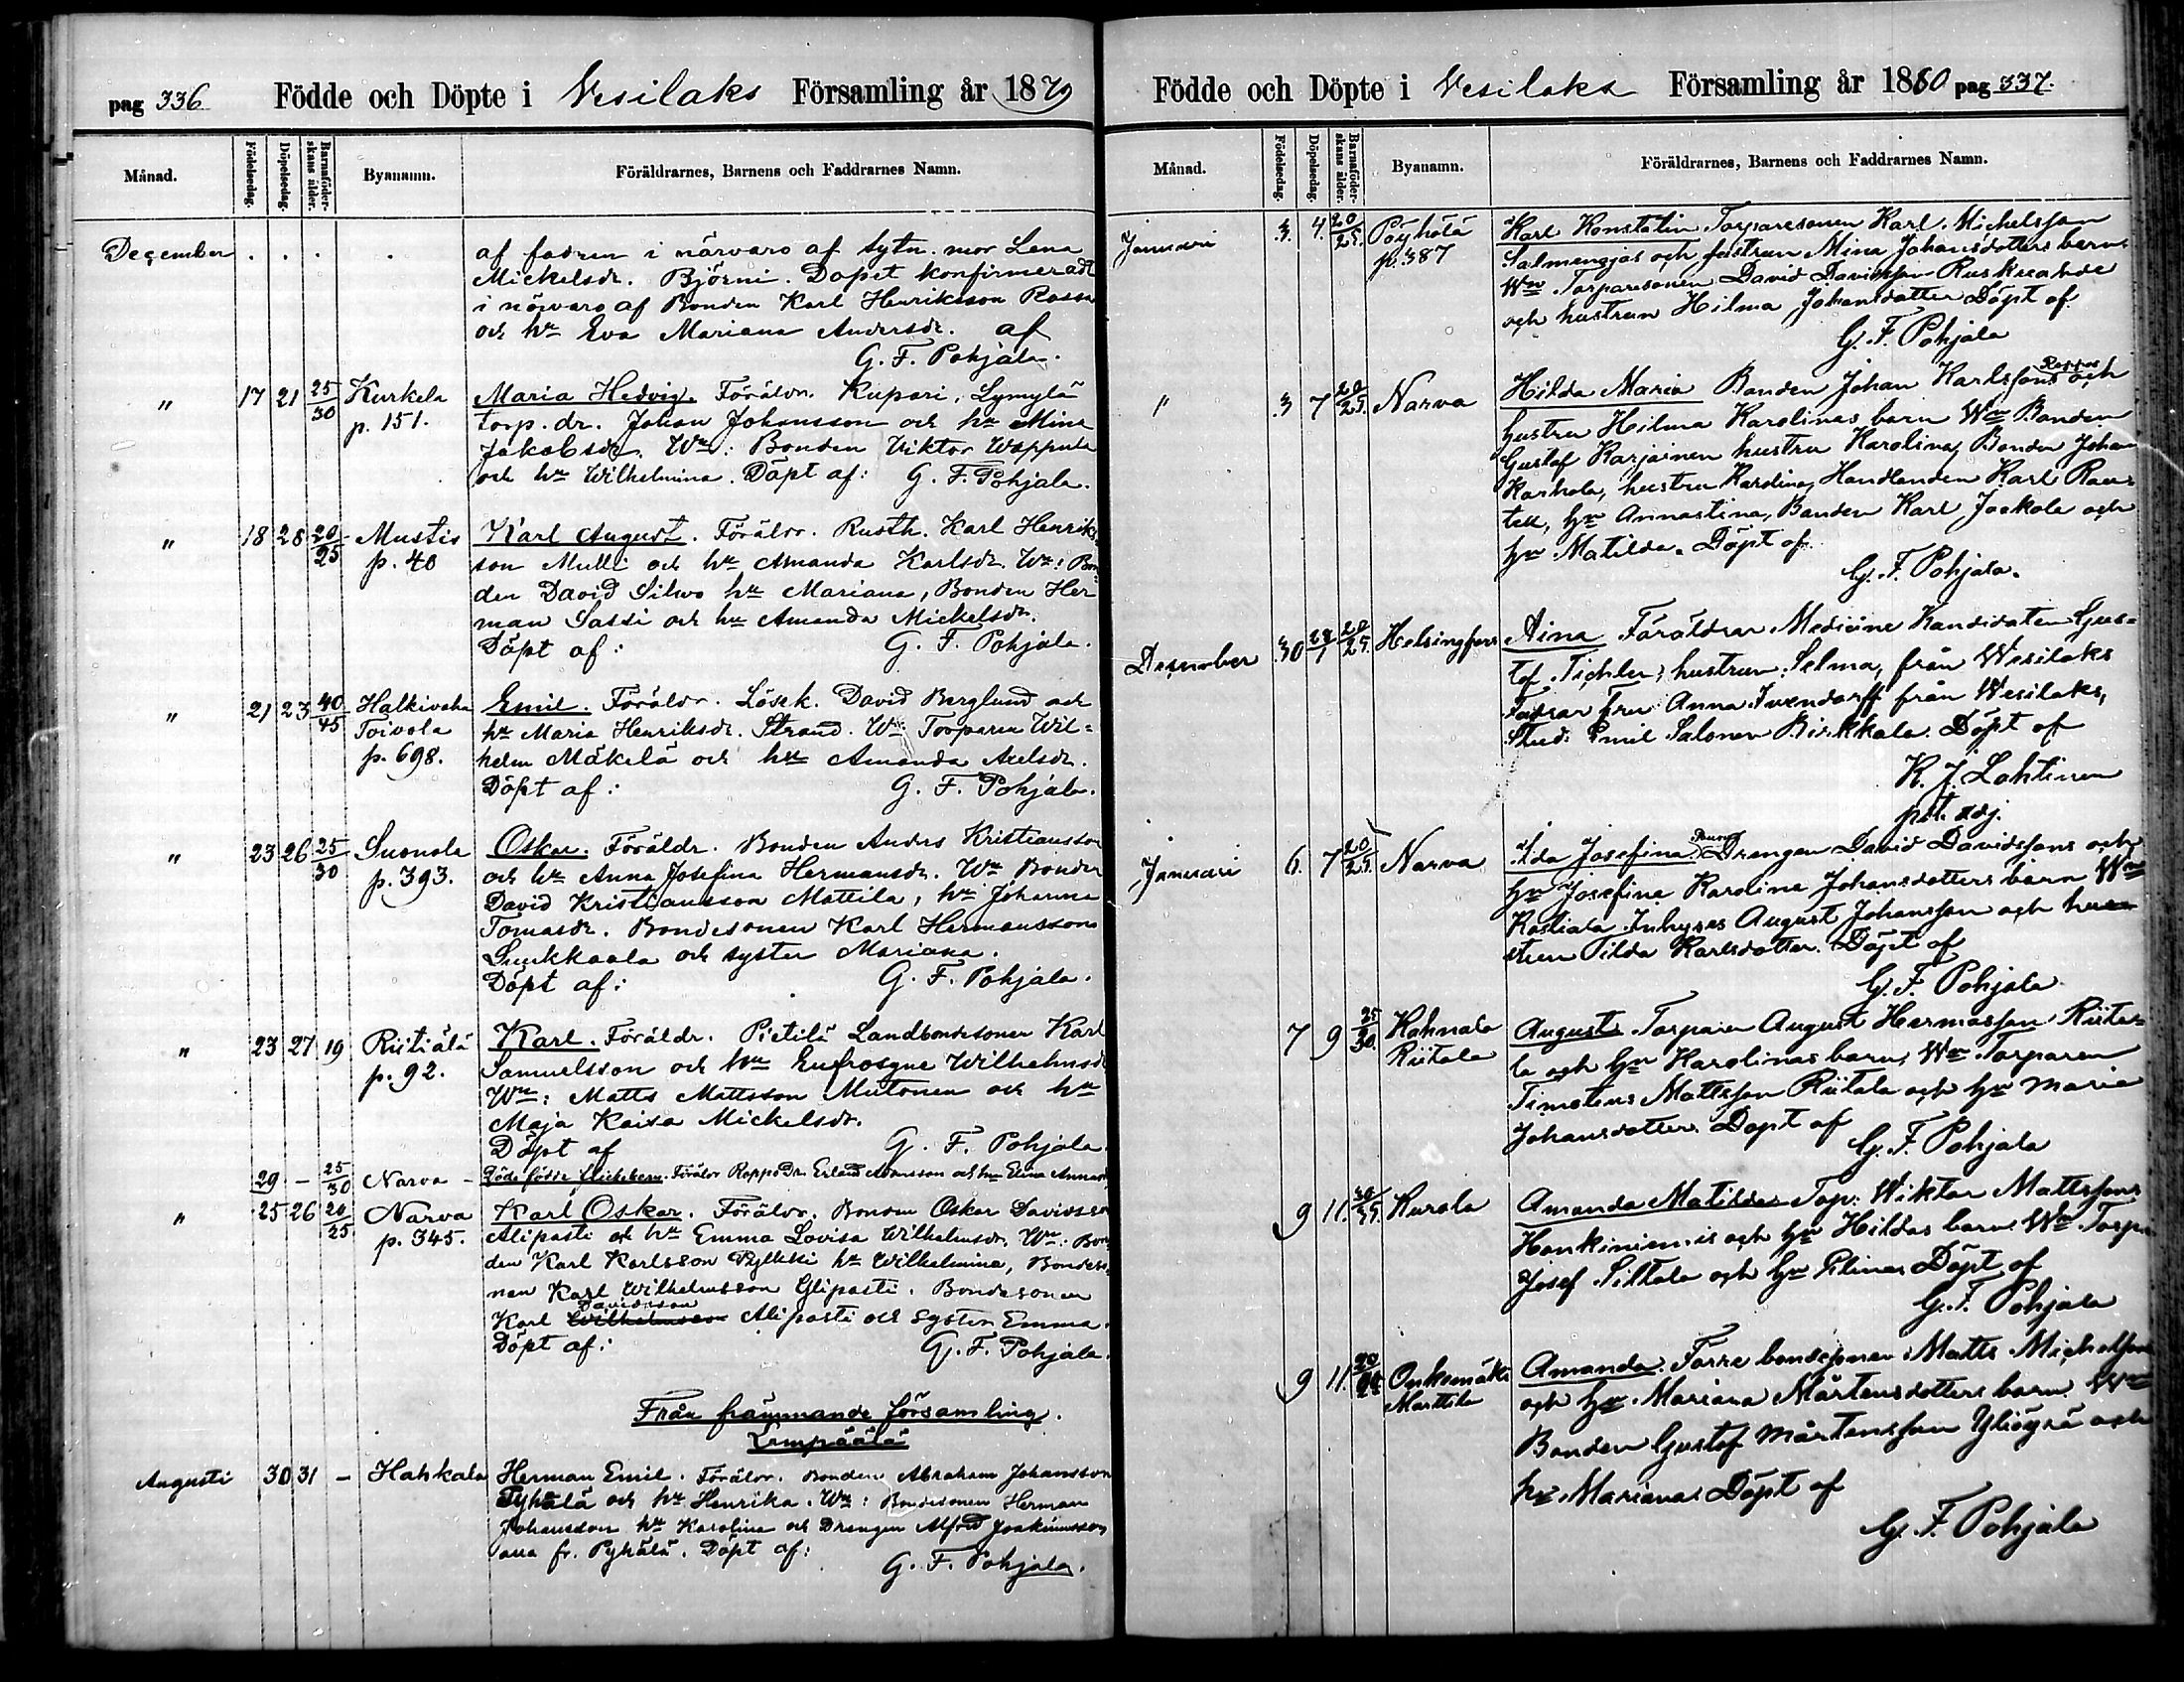 pag 336 Födde och Döpte i Vesilaks Församling år 1879
Månad. Födelsedag. Döpelsedag. Barnaföderskans ålder. Byanamn. Föräldrarnes, Barnens och Faddrarnes Namn.
December . . . . af fadren i närvaro af sytn. mor Lena
Mickelsdr. Björni. Dopet konfirmeradt
i närvaro af Bonden Karl Henriksson Rossa
och hn Eva Mariana Andersdr. af
G. F. Pohjala.
" 17 21 25/30 Kurkela Maria Hedvig. Föräldr. Kupari, Lymylä
p. 151. torp. dr. Johan Johansson och hn Mina
Jakobsdr. Wn: Bonden Viktor Wappula
och hn Wilhelmina. Döpt af: G. F. Pohjala.
" 18 28 20/25 Mustis Karl August. Föräldr. Rusth. Karl Henriks
p. 40 son Mulli och hn Amanda Karlsdr. Wn: Bon
den David Silwo hn Mariana, Bonden Her
man Sassi och hn Amanda Mickelsdr.
Döpt af: G. F. Pohjala.
" 21 23 40/45 Halkivaha Emil. Föräldr. Lösk. David Berglund och
Toivola hn Maria Henriksdr. Strand. Wn Torparen Wil=
p. 698. helm Mäkelä och hn Amanda Axelsdr.
Döpt af: G. F. Pohjala.
" 23 26 25/30 Suonola Oskar. Föräldr. Bonden Anders Kristiansson
p. 393. och hn Anna Josefina Hermansdr. Wn Bonden
David Kristiansson Mattila, hn Johanna
Tomasdr. Bondesonen Karl Hermansson
Suukkaala och syster Mariana.
Döpt af: G. F. Pohjala.
" 23 27 19 Riitiälä Karl. Föräldr. Pietilä Landbondesonen Karl
p. 92. Samuelsson och hn Eufrosyne Wilhelmsdr
Wn: Matts Mattsson Mutonen och hn
Maja Kaisa Mickelsdr.
Döpt af G. F. Pohjala.
29 - 25/30 Narva - Döde födde flickebarn. Föräldr Rappo Dr. Erland Adamsson och hn Elina
" 25 26 20/25 Narva Karl Oskar. Föräldr. Bonden Oskar Davidsson
p. 345. Alipasti och hn Emma Lovisa Wilhelmsdr. Wn: Bon
den Karl Karlsson Pylkki hn Wilhelmina, Bondeso
nen Karl Wilhelmsson Ylipasti. Bondesonen
Davidsson
Karl Wilhelmsson Alipasti och syster Emma.
Döpt af: G. F. Pohjala.
Från främmande församling.
Lempäälä
Augusti 30 31 - Hahkala Herman Emil. Föräldr. Bonden Abraham Johansson
Pyhälä och hn Henrika. Wn: Bondesonen Herman
Johansson hn Karolina och Drengen Alfred Joakimsson
alla fr. Pyhälä. Döpt af:
G. F. Pohjala.
Födde och Döpte i Vesilaks Församling år 1880 pag 337.
Månad. Födelsedag. Döpelsedag. Barnaföderskans ålder. Byanamn. Föräldrarnes, Barnens och Faddrarnes Namn.
Januari 3. 4. 20/25. Pöyhölä Karl Konstatin Torparesonen Karl Michelsson
p. 387 Salmensjas och hustrun Mina Johansdotters barn
Wn Torparesonen David Davidsson Ruskeahde
och hustrun Hilma Johansdotter Döpt af
G. F. Pohjala
Rappus
" 3 7 20/25. Narva Hilda Maria Bonden Johan Karlssons och
hustru Hilma Karolinas barn Wn Bonden
Gustaf Karjainen hustru Karolina, Bonden Johan
Karhola, hustru Karolina, Handlanden Karl Rau=
tell, hn Annastina, Bonden Karl Jaakola och
hn Matilda. Döpt af
G. F. Pohjala.
December 30 27/1 20/25. Helsingfors Aina Föräldrar Medicine Kandidaten Gus=
tof Tichler, hustrun Selma, från Wesilaks
Fadrar Fru Anna Ivendorff från Wesilaks,
Stud. Emil Salonen Birkkala. Döpt af
K. J. Lahtinen
pst. adj.
Januari 6. 7 20/25. Narva Ida Josefina Drengen David Davidssons och
hn Josefina Karolina Johansdotters barn Wn
Rastiala Inhyses August Johansson och hu
strun Tilda Karlsdotter. Döpt af
G. F. Pohjala
7 9 25/30. Kahnala August Torparen August Hermasson Riita=
Riitala la och hn Karolinas barn, Wn Torparen
Timoteus Mattsson Riitala och hn Maria
Johansdotter. Döpt af
G. F. Pohjala
9 11. 30/35. Kurala Amanda Matilda Torp. Wiktor Mattssons
Honkiniemis och hn Hildas barn Wn Torp.
Josef Siltala och hn Elina Döpt af
G. F. Pohjala
9 11. Onkemäki Amanda. Torre bondesonen Matts Michelsson
Marttila och hn Mariana Mårtensdotters barn. Wn
Bonden Gustaf Mårtensson Yliöyrä och
hn Mariana Döpt af
G. F. Pohjala